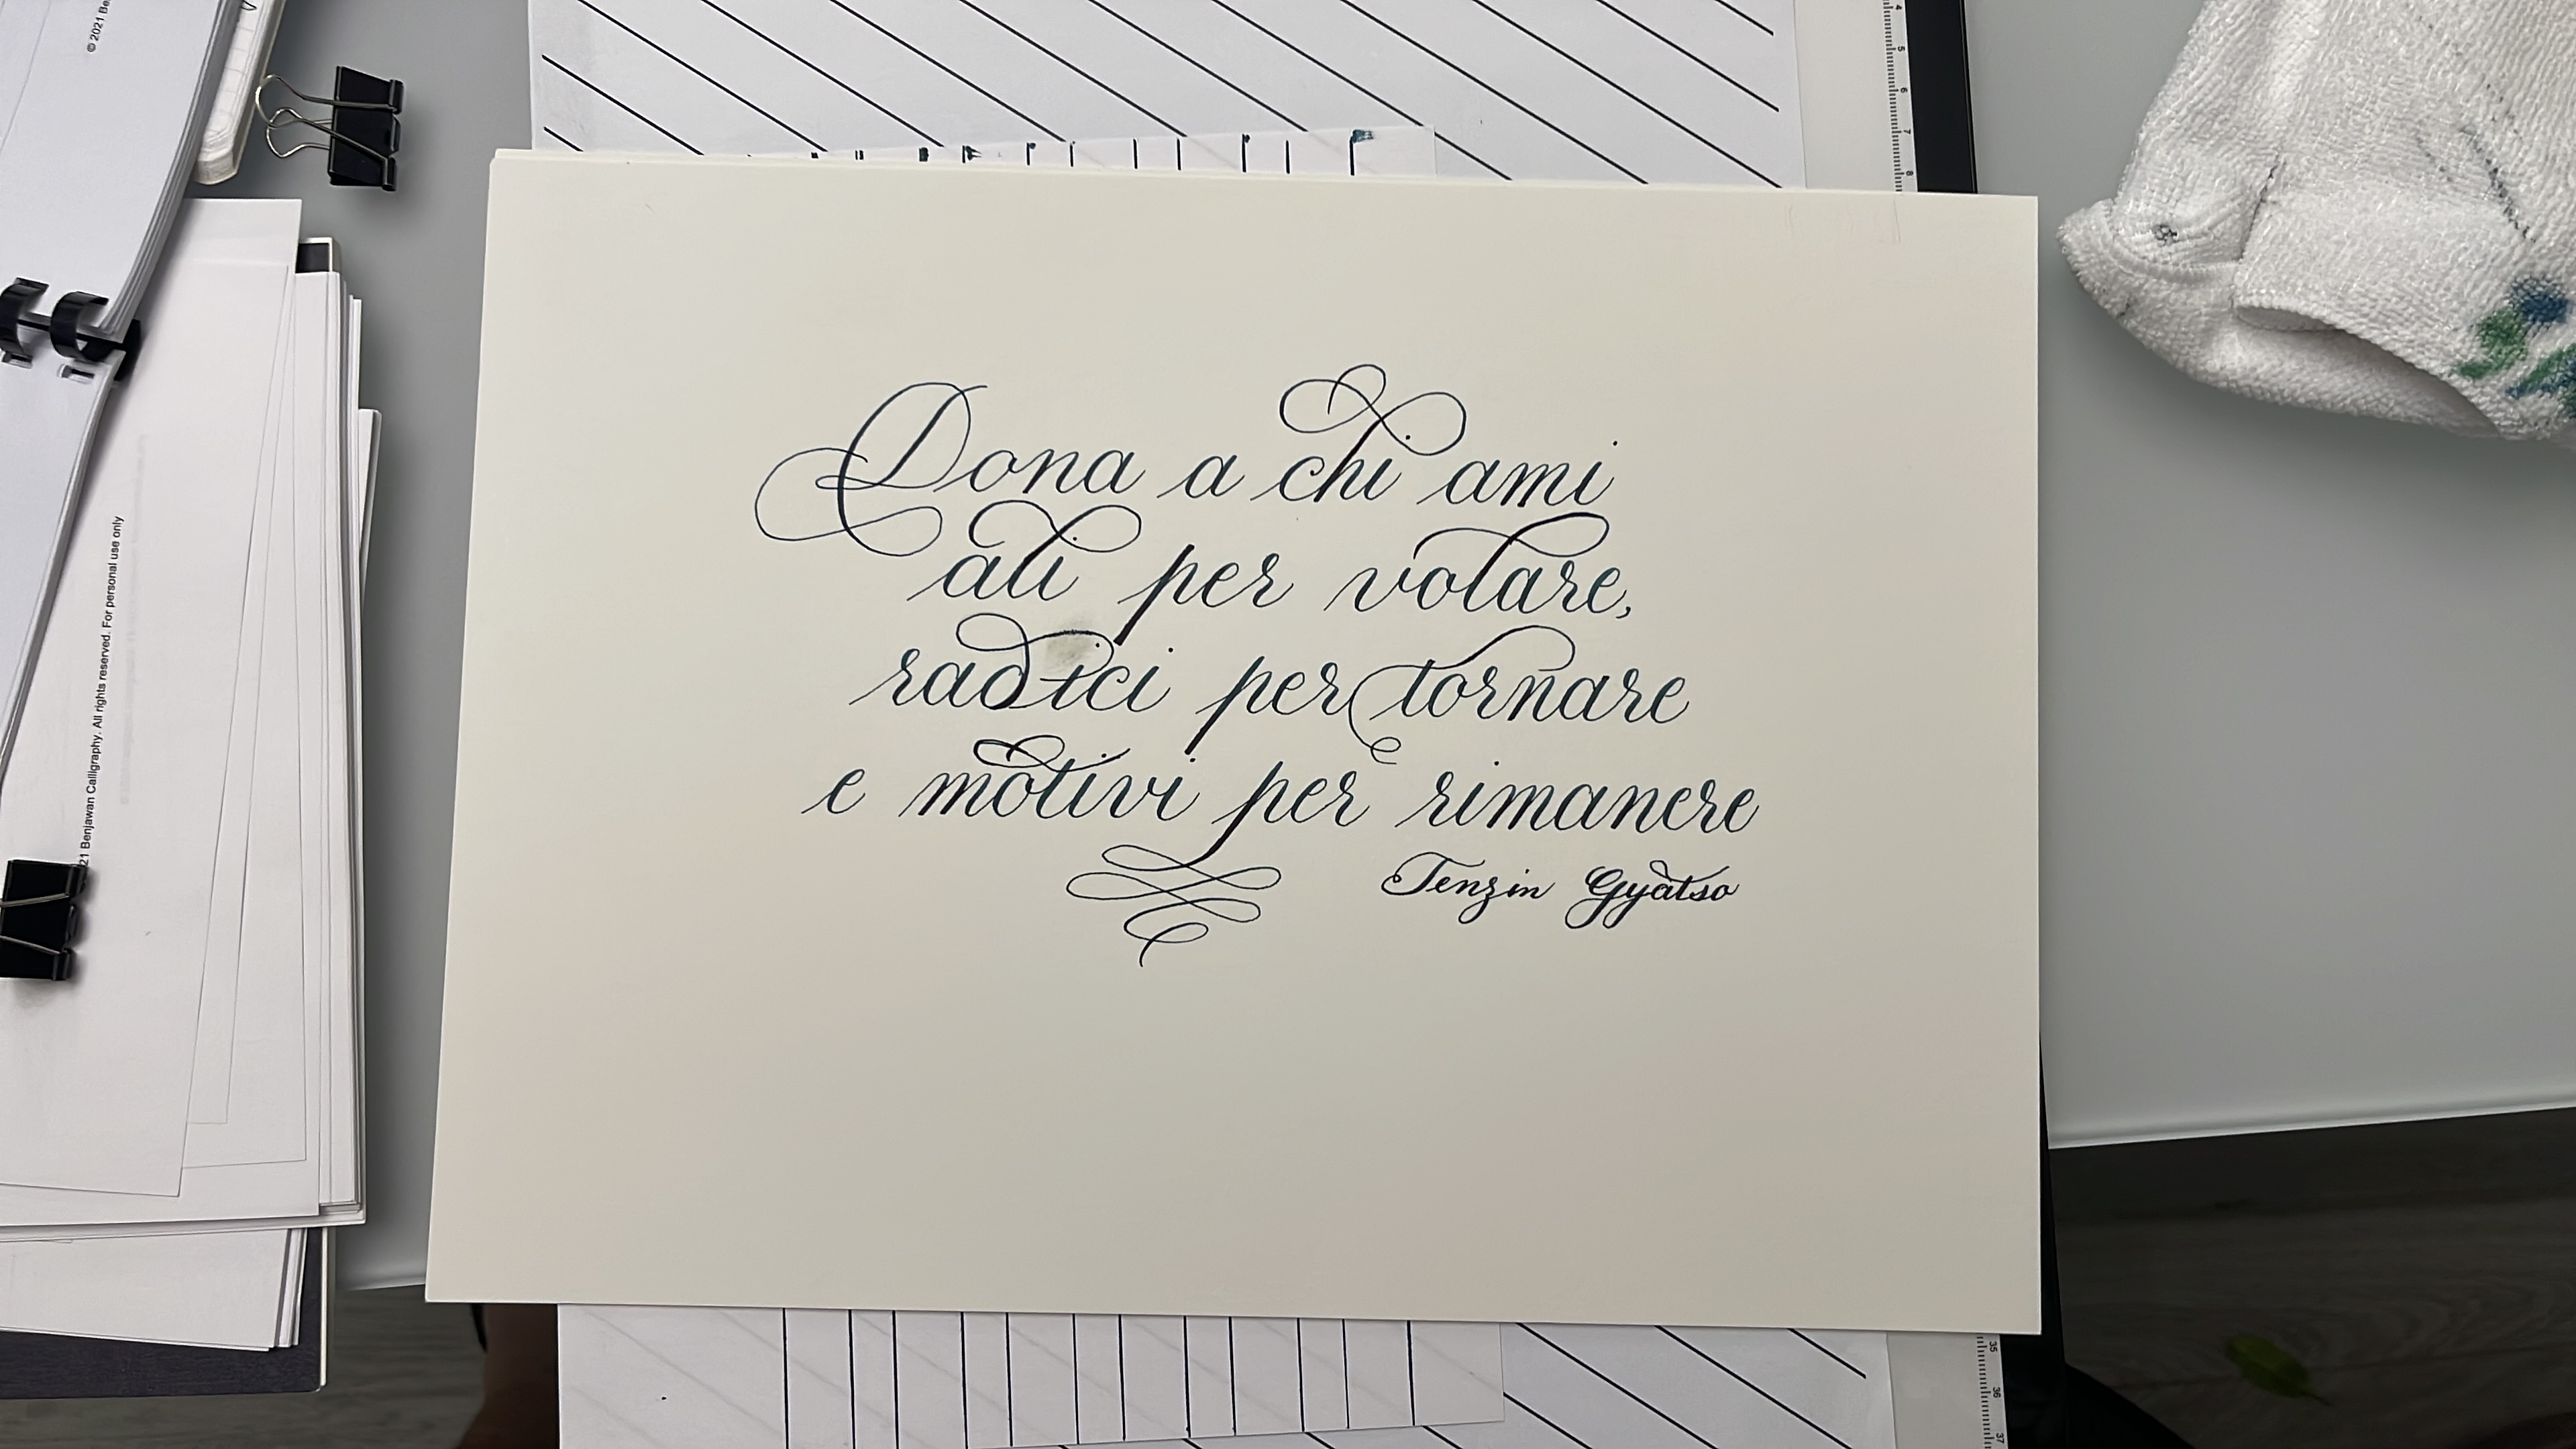 Dona a chi ami
ali per volare,
radici per tornare
e motivi per rimanere
Tenzin Gyatso
© 2021 Be
21 Benjawan Calligraphy. All rights reserved. For personal use only
4
5
6
7
8
35
36
37